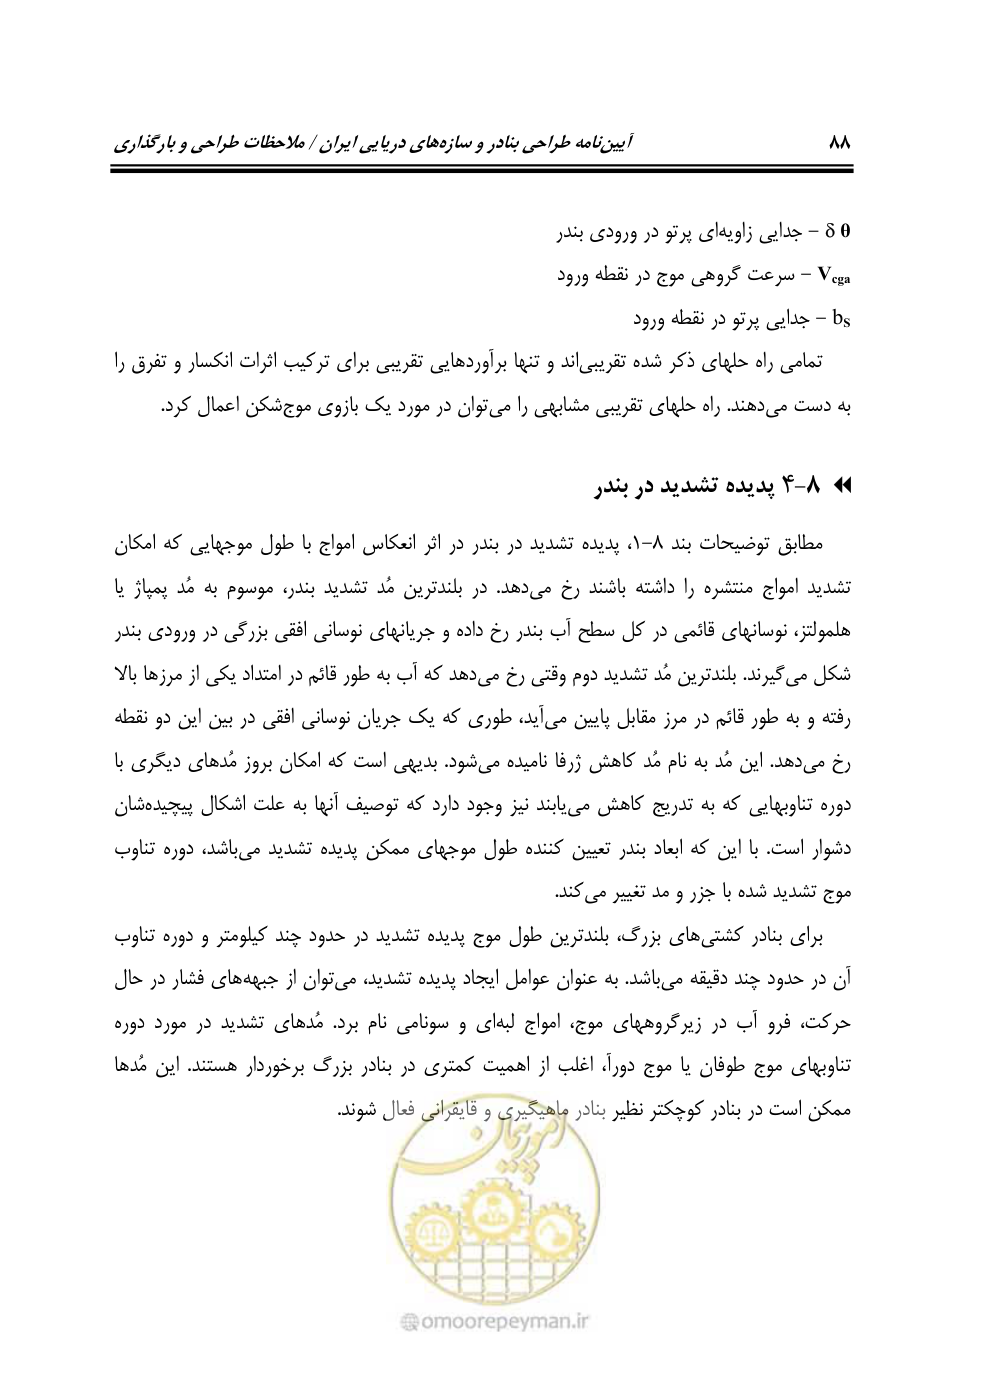 ۸۸ آیین‌نامه طراحی بنادر و سازه‌های دریایی ایران / ملاحظات طراحی و بارگذاری
δ θ – جدایی زاویه‌ای پرتو در ورودی بندر
Vcga – سرعت گروهی موج در نقطه ورود
bS – جدایی پرتو در نقطه ورود
تمامی راه حلهای ذکر شده تقریبی‌اند و تنها برآوردهایی تقریبی برای ترکیب اثرات انکسار و تفرق را
به دست می‌دهند. راه حلهای تقریبی مشابهی را می‌توان در مورد یک بازوی موج‌شکن اعمال کرد.
۸–۴ پدیده تشدید در بندر
مطابق توضیحات بند ۸–۱، پدیده تشدید در بندر در اثر انعکاس امواج با طول موجهایی که امکان
تشدید امواج منتشره را داشته باشند رخ می‌دهد. در بلندترین مُد تشدید بندر، موسوم به مُد پمپاژ یا
هلمولتز، نوسانهای قائمی در کل سطح آب بندر رخ داده و جریانهای نوسانی افقی بزرگی در ورودی بندر
شکل می‌گیرند. بلندترین مُد تشدید دوم وقتی رخ می‌دهد که آب به طور قائم در امتداد یکی از مرزها بالا
رفته و به طور قائم در مرز مقابل پایین می‌آید، طوری که یک جریان نوسانی افقی در بین این دو نقطه
رخ می‌دهد. این مُد به نام مُد کاهش ژرفا نامیده می‌شود. بدیهی است که امکان بروز مُدهای دیگری با
دوره تناوبهایی که به تدریج کاهش می‌یابند نیز وجود دارد که توصیف آنها به علت اشکال پیچیده‌شان
دشوار است. با این که ابعاد بندر تعیین کننده طول موجهای ممکن پدیده تشدید می‌باشد، دوره تناوب
موج تشدید شده با جزر و مد تغییر می‌کند.
برای بنادر کشتی‌های بزرگ، بلندترین طول موج پدیده تشدید در حدود چند کیلومتر و دوره تناوب
آن در حدود چند دقیقه می‌باشد. به عنوان عوامل ایجاد پدیده تشدید، می‌توان از جبهه‌های فشار در حال
حرکت، فرو آب در زیرگروههای موج، امواج لبه‌ای و سونامی نام برد. مُدهای تشدید در مورد دوره
تناوبهای موج طوفان یا موج دورآ، اغلب از اهمیت کمتری در بنادر بزرگ برخوردار هستند. این مُدها
ممکن است در بنادر کوچکتر نظیر بنادر ماهیگیری و قایقرانی فعال شوند.
امور پیمان
@omoorepeyman.ir